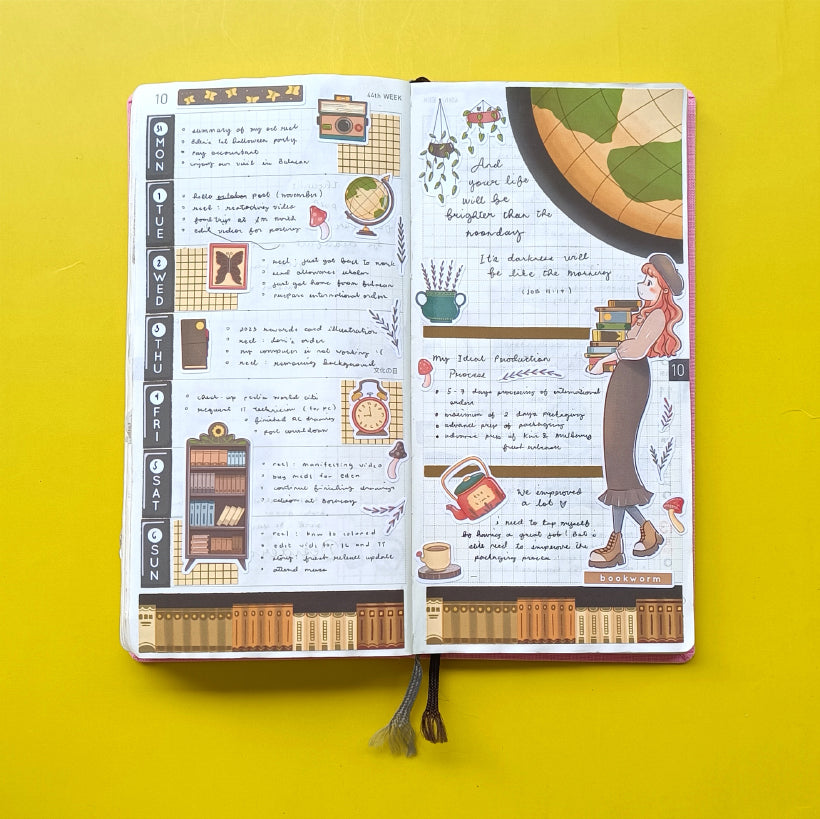 10
44th WEEK
31 MON
summary of my oct reel
Eden's 1st halloween party
pay accountant
enjoy our visit in Bulacan
1 TUE
hello october post (november)
reel: restocking video
food trip at SM north
edit video for posting
2 WED
reel: just got back to work
send allowance
just got home from Bulacan
prepare international orders
3 THU
2023 rewards card illustration
reel: order
my computer is not working :(
reel: removing background
文化の日
4 FRI
check up world citi
request IT technician (for PC)
finished drawing
post countdown
5 SAT
reel: manifesting video
buy meds for Eden
continue finishing drawings
at Boracay
6 SUN
reel: how to colored
edit vids for IG and TT
story: fresh release update
attend mass
And
your life
will be
brighter than the
noonday
It's darkness will
be like the morning
(Job 11:17)
My Ideal Production
Process
5-7 days processing of international
orders
maximum of 2 days packaging
advance prep of packaging
advance prep of & Mulberry
fresh release
10
We improved
a lot
I need to tap myself
by having a great job! But i
also need to improve the
packaging process
bookworm